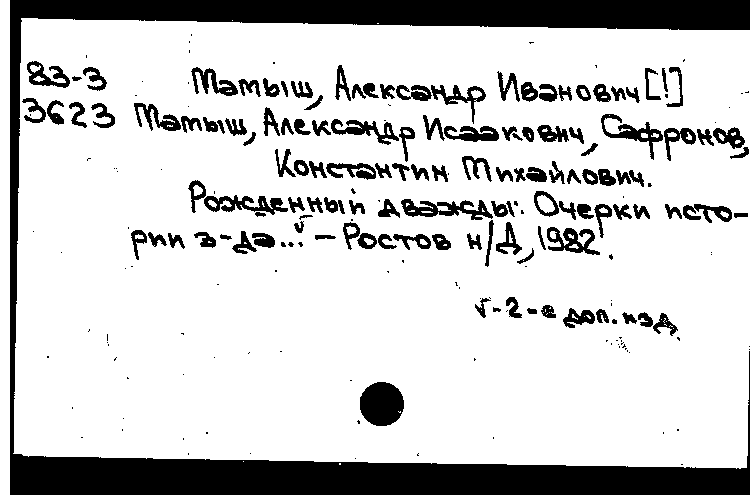 83-3 Мамыш, Александр Иванович [!]
3623 Мамыш, Александр Исаакович, Сафронов,
Константин Михайлович.
Рожденный дважды: Очерки исто-
рии з-да...√ – Ростов н/Д, 1982.
√-2-е доп. изд.